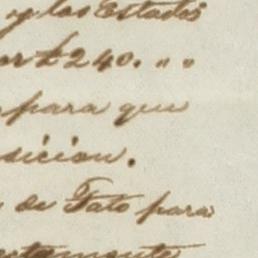 y los Estados
or £240. " "
para que
sicion.
de Tato para
ectamente